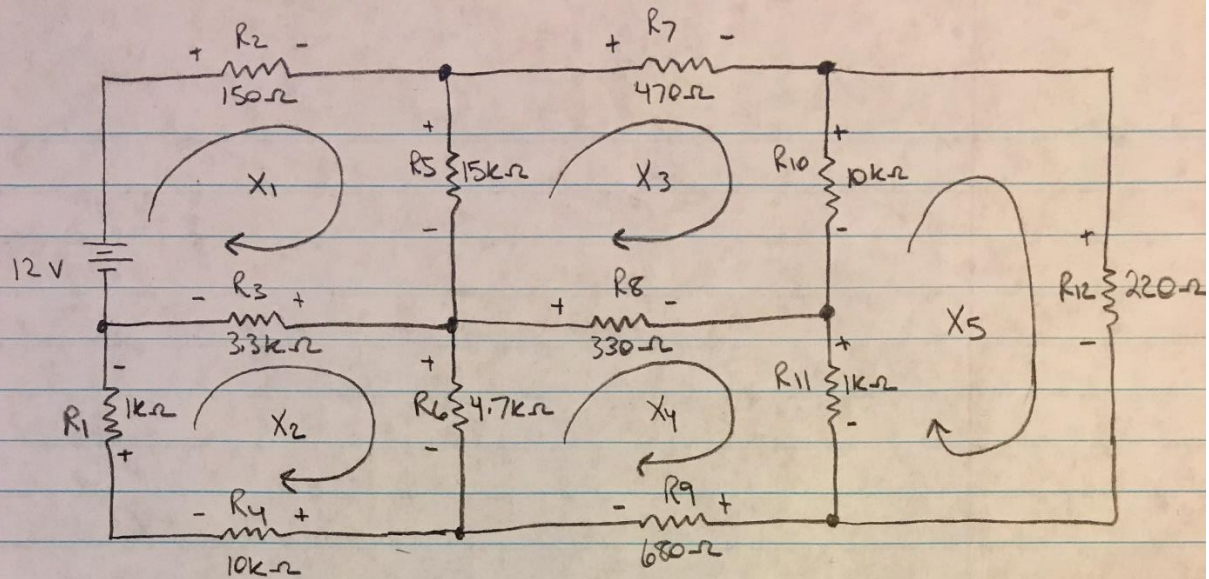 + R2 -
150Ω
+ R7 -
470Ω
+
R5 15kΩ
-
+
R10 10kΩ
-
X1
X3
12 V
- R3 +
3.3kΩ
+ R8 -
330Ω
+
R12 220Ω
-
X5
-
R1 1kΩ
+
X2
+
R6 4.7kΩ
-
X4
+
R11 1kΩ
-
- R4 +
10kΩ
- R9 +
680Ω